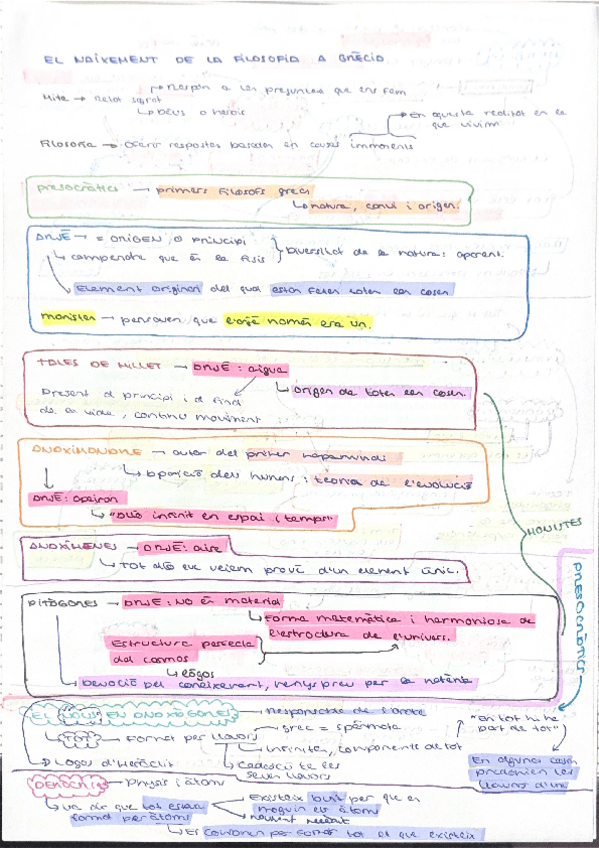 EL NAIXEMENT DE LA FILOSOFIA A GRÈCIA
Respón a les preguntes que ens fem
Mite → relat sagrat
↳ Déus o herois
en aquesta realitat en la
que vivim
FILOSOFIA → Oferir respostes basades en causes immanents
PRESOCRÀTICS → primers filòsofs grecs
↳ natura, canvi i origen.
ARJÉ → = ORIGEN, o principi
↳ comprendre que és la fisis
Diversitat de la natura: aparent.
Element originari del qual estan fetes totes les coses
monistes → pensaven que l'arjé només era un.
TALES DE MILLET → ARJÉ: aigua
↳ origen de totes les coses.
Present al principi i al final
de la vida, continu moviment
ANAXIMANDRE → autor del primer mapamundi
↳ Aparició dels humans: teoria de l'evolució
ARJÉ: apeiron
↳ "Allò infinit en espai i temps"
ANAXÍMENES → ARJÉ: aire
↳ TOT allò que veiem prové d'un element únic.
MONISTES
PRESOCRÀTICS
PITÀGORES → ARJÉ: NO és material
↳ Forma matemàtica i harmoniosa de
l'estructura de l'univers.
Estructura perfecta
del cosmos
↳ Lógos
↳ Devoció pel coneixement, menyspreu per la
EL NOUS EN ANAXÀGORES → Responsable de l'ordre
↳ TOT → Format per llavors
grec = spèrmata
↳ Infinites, components de tot
↳ Cadascú té les
seves llavors
"En tot hi ha
part de tot"
En algunes coses
predominen les
llavors d'una
↳ Logos d'Heràclit
DEMÒCRIT → Physis i àtoms
↳ Va dir que tot estava
format per àtoms
Existeix buit per que es
moguin els àtoms
↳ Es combinen per formar tot el que existeix